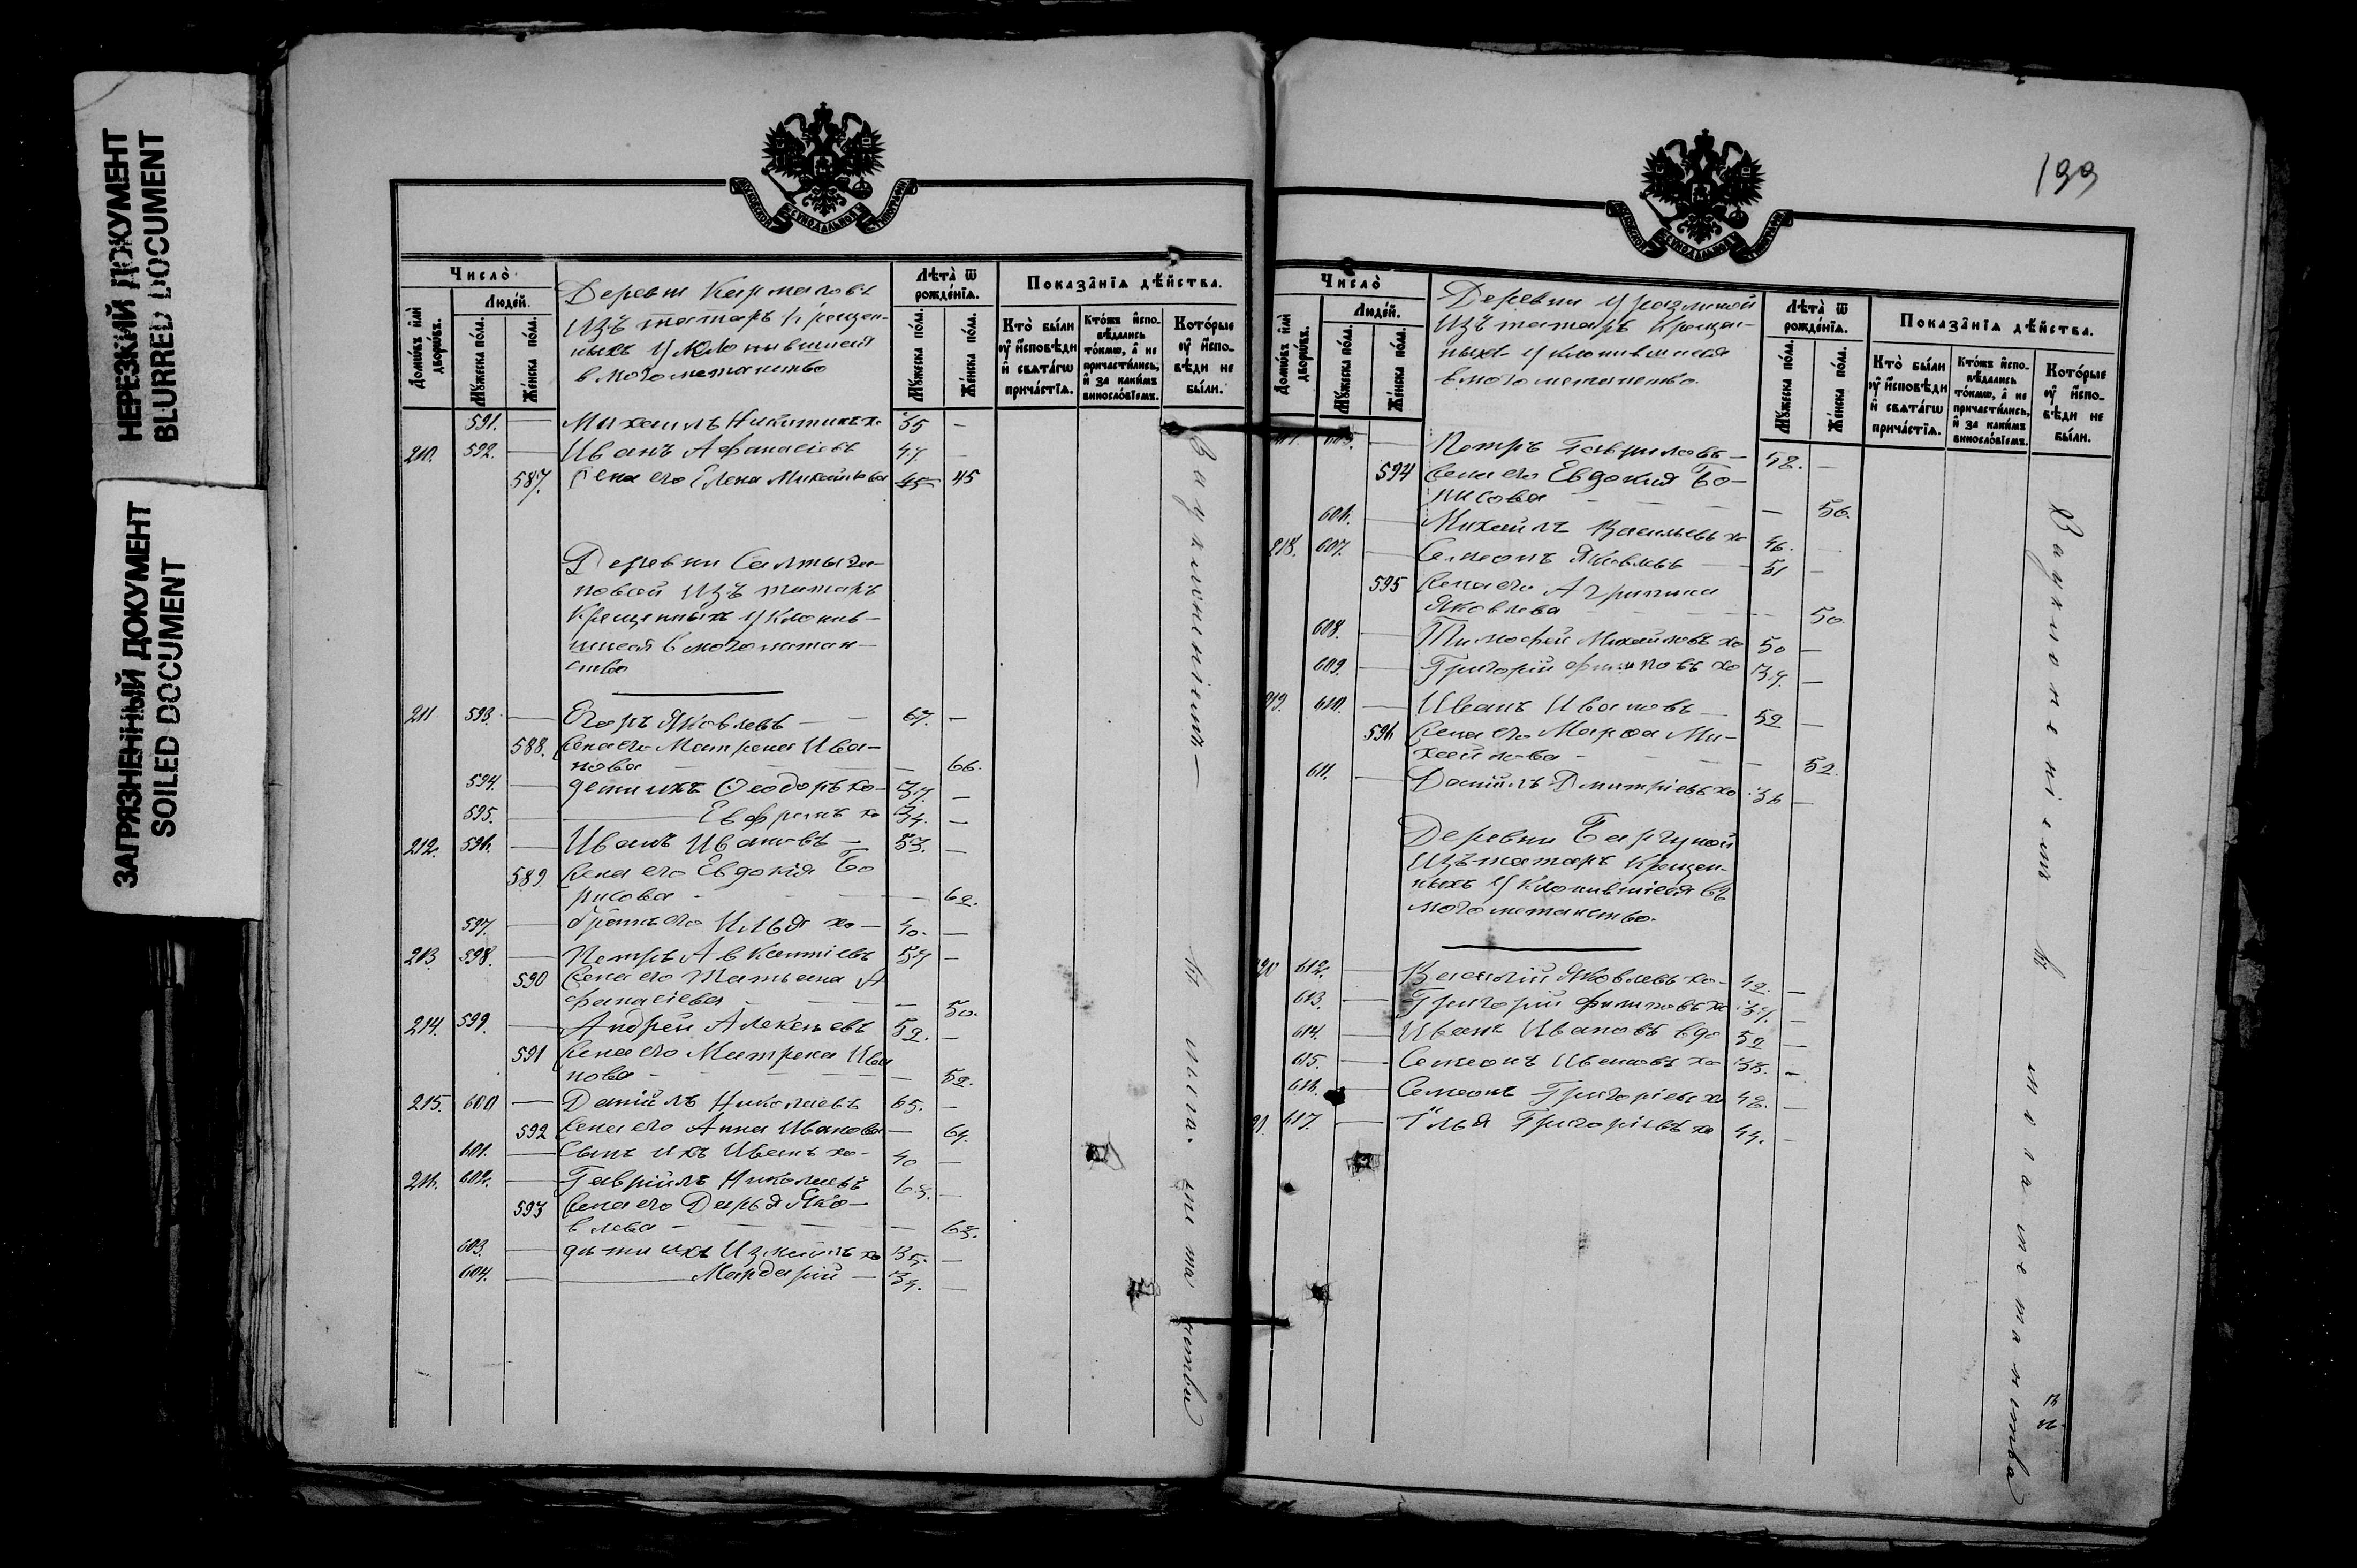 НЕРЕЗКИЙ ДОКУМЕНТ
BLURRED DOCUMENT
ЗАГРЯЗНЕННЫЙ ДОКУМЕНТ
SOILED DOCUMENT
Число̀
Домѡ́въ и҆лѝ дворѡ́въ.
Люде́й.
Мꙋ́жеска по́ла.
Же́нска по́ла.
Деревни Кармаловъ
Изъ татаръ Крещен-
ныхъ уклонившиеся
в могометанство
Лѣта̀ ѿ рожде́нїѧ.
Мꙋ́жеска по́ла.
Же́нска по́ла.
Показа̑нїѧ дѣ́йства.
Кто̀ бы́ли
ᲂу҆ и҆сповѣ́ди
и҆ свѧта́гѡ
прича́стїѧ.
Кто́жъ и҆спо-
вѣ́дались
то́кмѡ, а҆ не
причасти́лись,
и҆ за каки́мъ
винослѡ́вїемъ.
Кото́рые
ᲂу҆ и҆спо-
вѣ́ди не
бы́ли.
591. — Михаилъ Никитинъ х. 35 —
210. 592. — Иванъ Афанасіевъ 47 —
587. Жена его Елена Михайлова 45 45
Деревни Салтыга-
новой Изъ татаръ
Крещенныхъ Уклонив-
шиеся в могометан-
ство
211 593. — Егоръ Яковлевъ — 67. —
588. Жена его Матрена Ива-
нова — 66.
594. — дети ихъ Ѳеодоръ хо- 37. —
595. — Ефремъ х 34. —
212. 596. — Иванъ Ивановъ — 53. —
589 Жена его Евдокія Бо
рисова - — 62.
597. — братъ его Илья хо — 40. —
213 598. — Петръ Авкентіевъ 57 —
590 Жена его Татьяна А
фанасіева — 50.
214. 599. — Андрей Алексѣевъ 52. —
591 Жена его Матрена Ива
нова — 52.
215. 600 — Даніилъ Николаевъ 65. —
592 Жена его Анна Иванова — 64.
601. — Сынъ ихъ Иванъ хо- 40 —
216. 602. — Гавріилъ Николаевъ 63. —
593 Жена его Дарья Яко-
влева — 63.
603. — дѣти ихъ Измаилъ хо 35. —
604. — Мардарій — 34. —
За уклоненіемъ —
въ магометанство
199
Число̀
Домѡ́въ и҆лѝ дворѡ́въ.
Люде́й.
Мꙋ́жеска по́ла.
Же́нска по́ла.
Деревни Уразлиной
Изъ татаръ Крещен-
ныхъ уклонившиеся
в могометанство.
Лѣта̀ ѿ рожде́нїѧ.
Мꙋ́жеска по́ла.
Же́нска по́ла.
Показа̑нїѧ дѣ́йства.
Кто̀ бы́ли
ᲂу҆ и҆сповѣ́ди
и҆ свѧта́гѡ
прича́стїѧ.
Кто́жъ и҆спо-
вѣ́дались
то́кмѡ, а҆ не
причасти́лись,
и҆ за каки́мъ
винослѡ́вїемъ.
Кото́рые
ᲂу҆ и҆спо-
вѣ́ди не
бы́ли.
605. — Петръ Гавриловъ — 58. —
594 Жена его Евдокия Бо-
рисова — 56.
606. — Михаилъ Васильевъ хо 46. —
218. 607. — Семеонъ Яковлевъ — 51 —
595 Жена его Агрипина
Яковлева — 50.
608. — Тимофей Михайловъ хо 50 —
609. — Григорій Филиповъ хо 39. —
219. 610. — Иванъ Ивановъ — 52 —
596 Жена его Марѳа Ми-
хайлова — 52.
611. — Даніилъ Дмитріевъ хо 36 —
Деревни Баргуной
Изъ татаръ Крещен-
ныхъ Уклонившиеся въ
могометанство.
220 612. — Василій Яковлевъ хо- 42. —
613. — Григорій Филиповъ хо 39. —
614. — Иванъ Ивановъ вдо 52 —
615. — Семеонъ Ивановъ хо 35. —
616. — Семеонъ Григоріевъ хо 48. —
617. — Илья Григоріевъ хо 44. —
За уклоненіемъ въ
магометанство